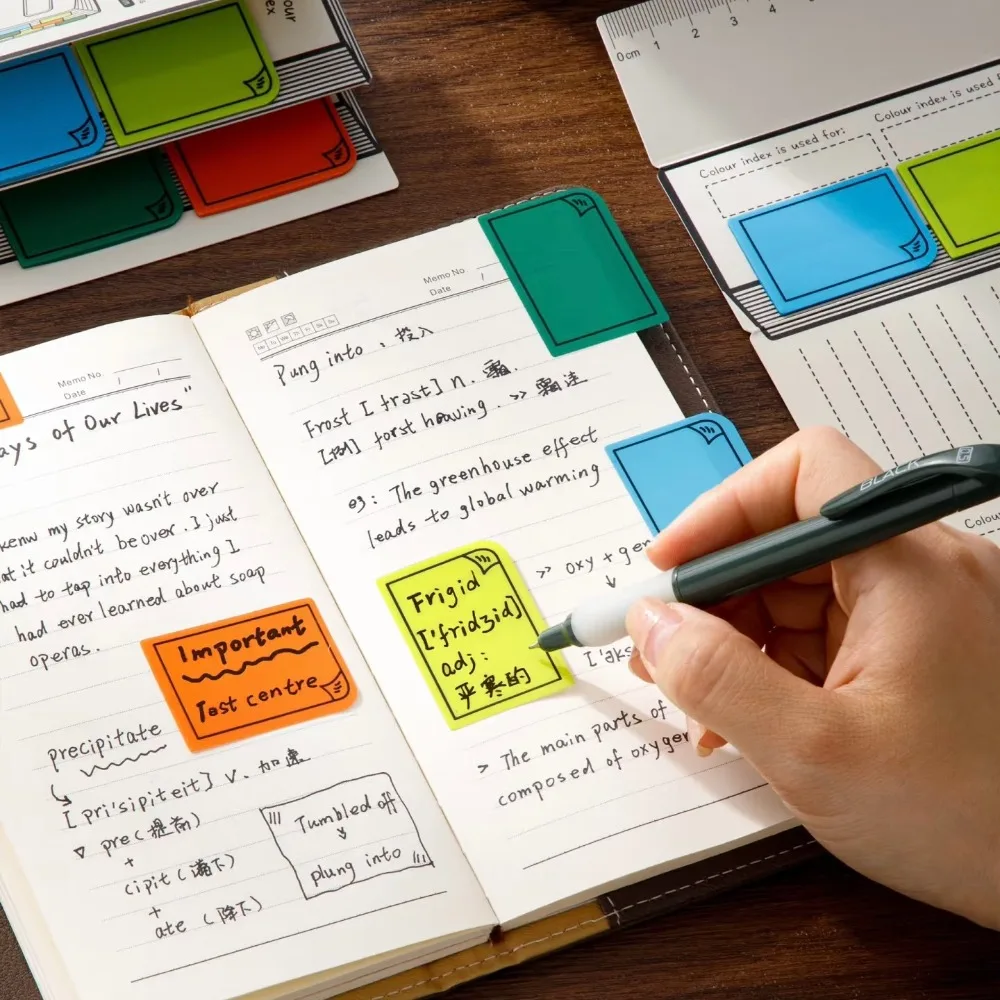 our
ex
0cm 1 2 3 4
Colour index is used for:
Colour index is used f
Memo No.
Date / /
ays of Our Lives"
kenw my story wasn't over
at it couldn't be over. I just
had to tap into everything I
had ever learned about soap
operas.
Important
Test centre
precipitate
[pri'sipiteit] v. 加速
▽ pre(提前)
+
cipit(落下)
+
ate (降下)
Tumbled off
plung into
Memo No.
Date /
Mo Tu We Th Fr Sa Su
Pung into 、投入
Frost [frast] n. 霜.
forst heaving. >> 霜
eg: The greenhouse effect
leads to global warming
>> oxy + gen
Frigid
['fridʒid]
adj:
严寒的
['aks
> The main parts of
composed of oxygen
BLACK
Colou